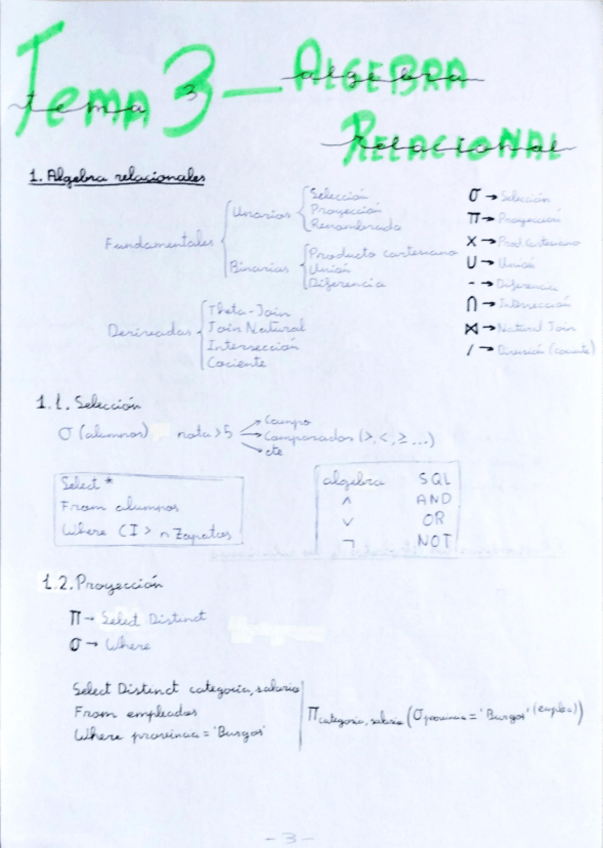 Tema 3 — Algebra
tema 3 algebra
Relacional
relacional
1. Algebra relacionales
Fundamentales
Unarios
Selección
Proyección
Renombrada
Binarias
Producto cartesiano
Unión
Diferencia
Derivadas
Theta-Join
Join Natural
Intersección
Cociente
σ → Selección
Π → Proyección
X → Prod Cartesiano
U → Unión
- → Diferencia
∩ → Intersección
⋈ → Natural Join
/ → División (cociente)
1.1. Selección
σ (alumnos) nota > 5
→ Campo
→ Comparador (>, <, ≥ ...)
→ cte
Select *
From alumnos
Where CI > nZapatos
algebra SQL
∧ AND
∨ OR
¬ NOT
1.2. Proyección
Π → Select Distinct
σ → Where
Select Distinct categoria, salario
From empleados
Where provincia = 'Burgos'
Π categoria, salario (σ provincia = 'Burgos' (emplea))
- 3 -